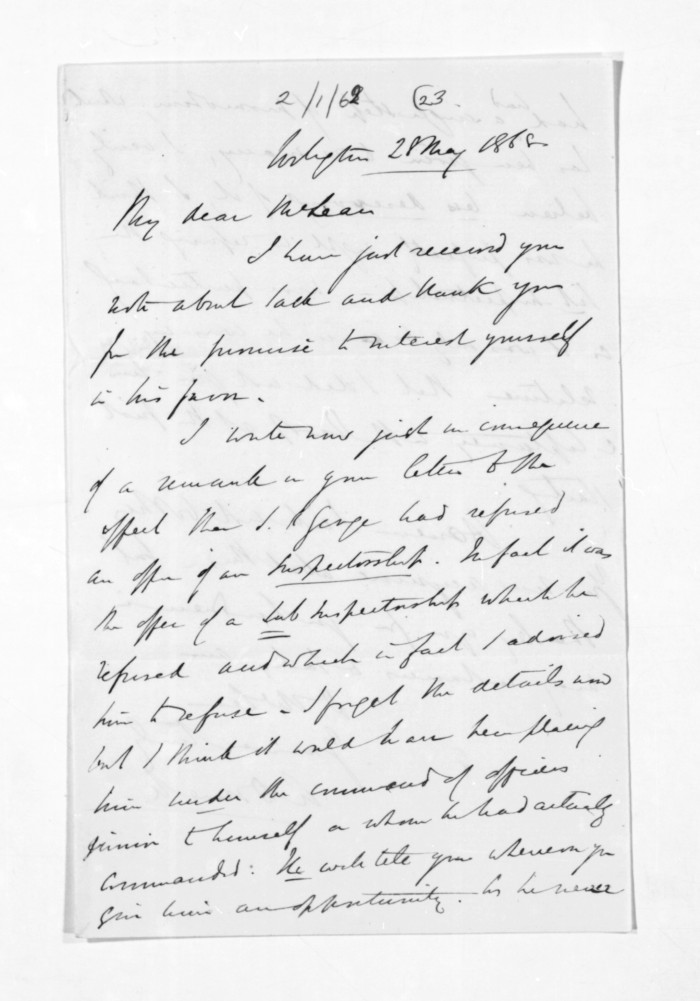 2/1/62 (23.
Wellington 28 May 1868
My dear McLean
I have just received your
note about Jack and thank you
for the promise to interest yourself
in his favor.
I write now just in consequence
of a remark in your letter to the
effect that St. George had refused
an offer of an Inspectorship. In fact it was
the offer of a Sub Inspectorship which he
refused and which in fact I advised
him to refuse - I forget the details now
but I think it would have been placing
him under the command of officers
junior to himself or whom he had actually
commanded: He will tell you whenever you
give him an opportunity. As he never